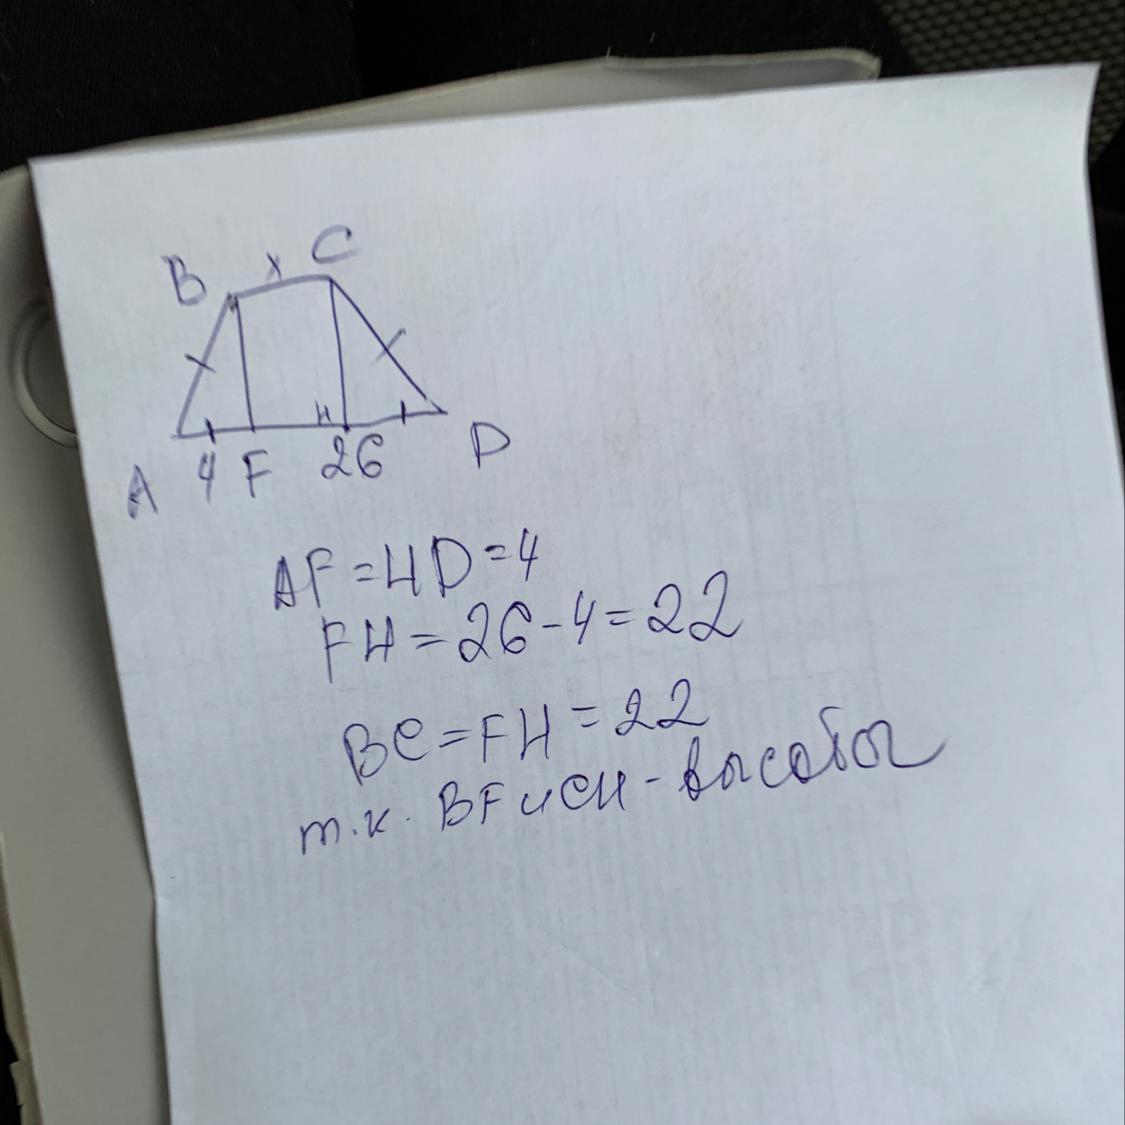 B x C
A 4 F H 26 D
AF=HD=4
FH=26-4=22
BC=FH=22
т.к. BF и CH - высоты